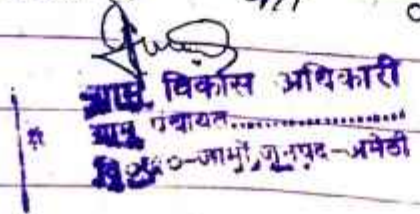 ग्राम विकास अधिकारी
ग्राम पंचायत..................
वि०ख०-जामों, जनपद-अमेठी